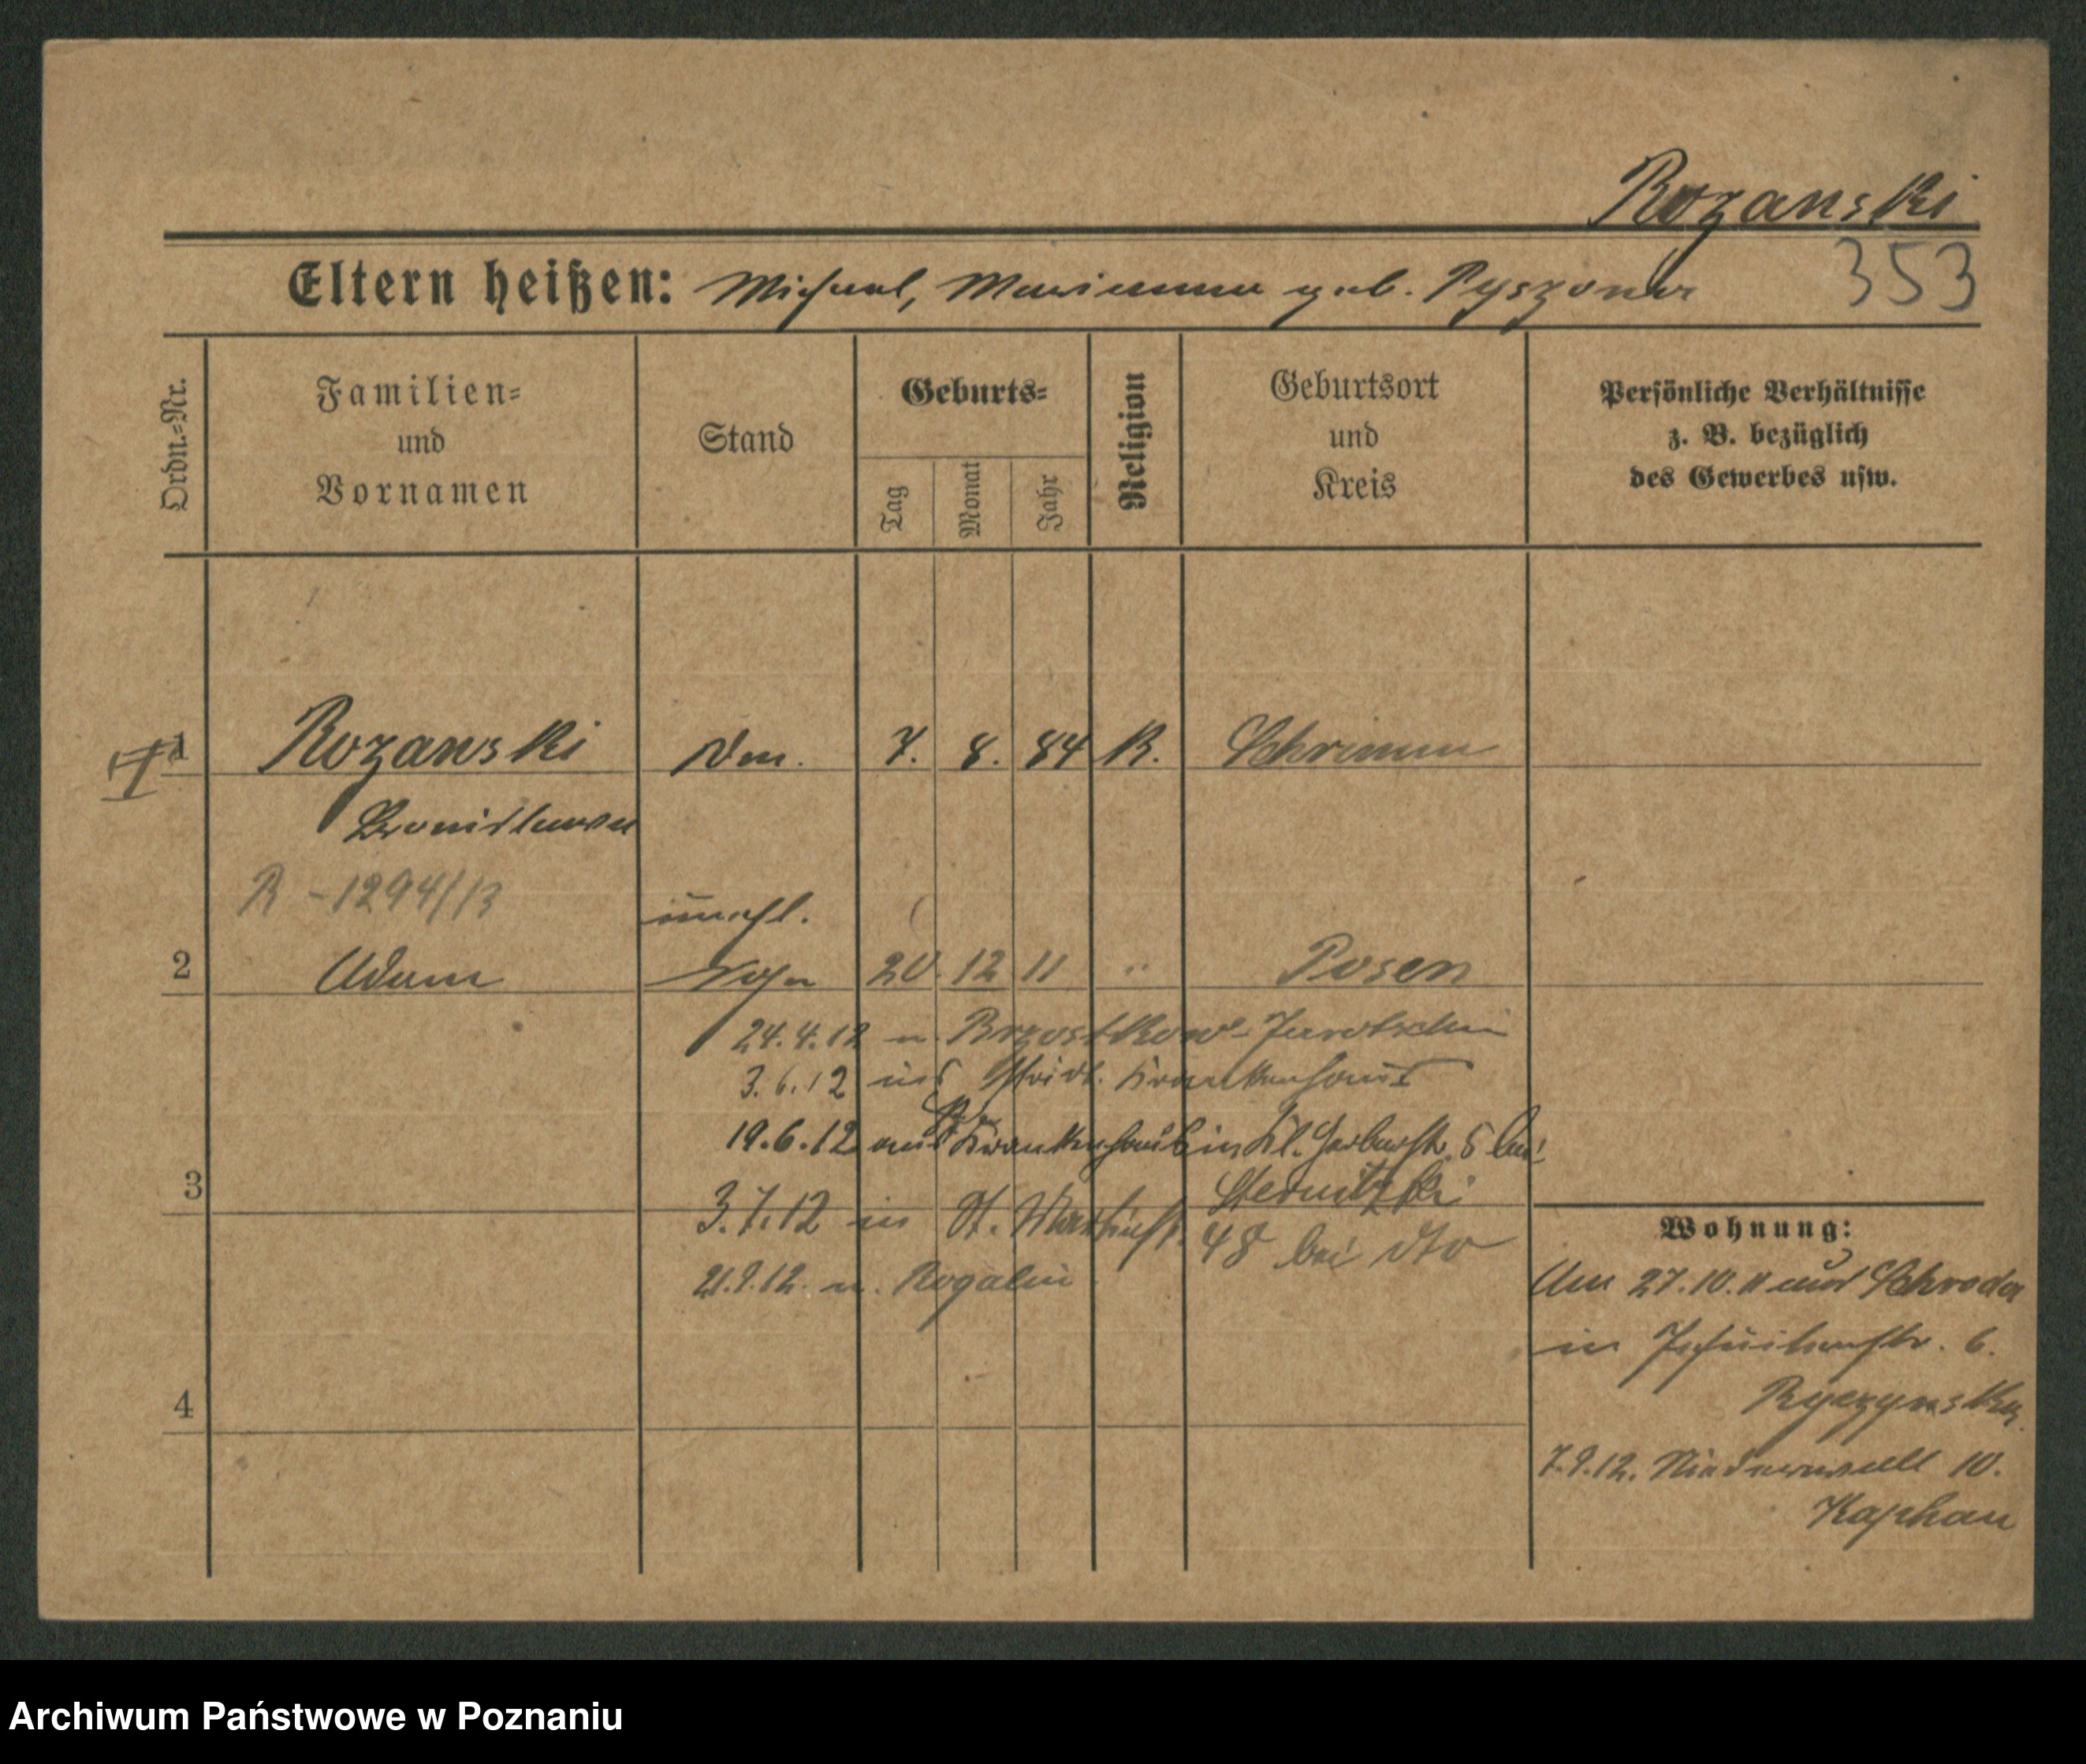 Rozanski
353
Eltern heißen: Michael, Marianna geb. Pyszona
Ordn.-Nr.
Familien- und Vornamen
Stand
Geburts-
Tag
Monat
Jahr
Religion
Geburtsort und Kreis
Persönliche Verhältnisse
z. B. bezüglich
des Gewerbes usw.
1 Rozanski 7. 8. 84 K. Schrimm
Bronislawa
R - 1294/13
unehl.
2 Adam Sohn 20. 12 11 " Posen
24.4.12 n. Brzostkow Jarotschin
3.6.12 ins städt. Krankenhaus
19.6.12 aus Krankenhaus in Kl. Gerberstr. 5 bei
Sternitzki
3
3.7.12 in St. Martinstr. 48 bei dto
21.9.12. n. Rogalin
4
Wohnung:
Am 27.10.11 aus Schroda
in Jesuitenstr. 6.
7.9.12. Niederwall 10.
Kaphan
Archiwum Państwowe w Poznaniu